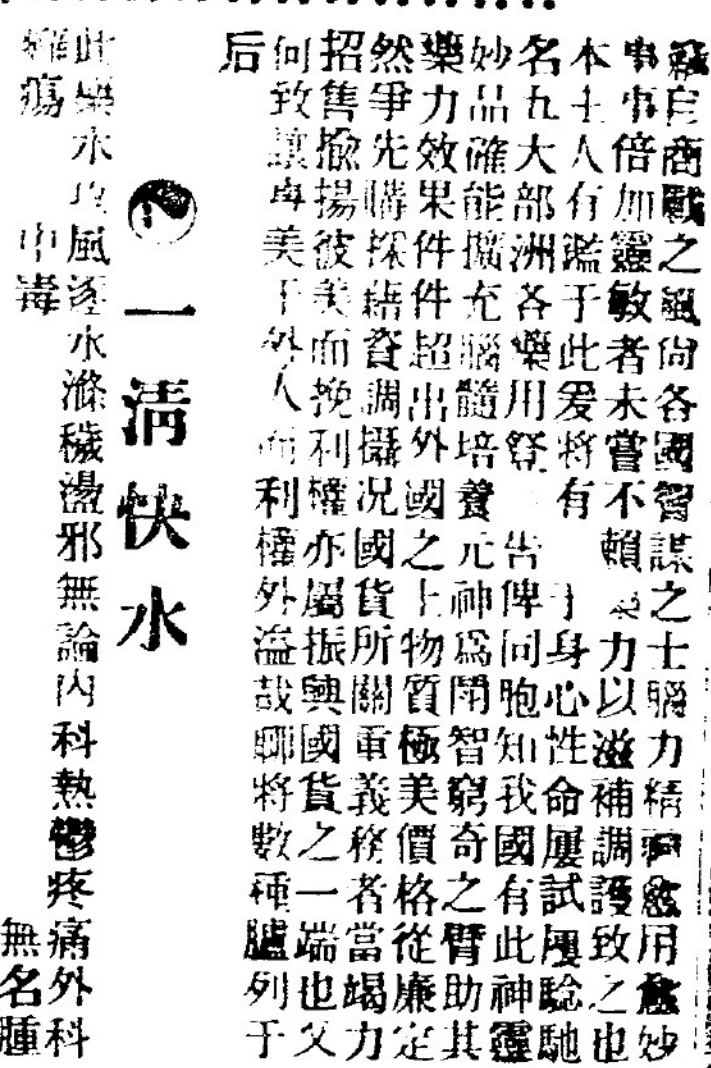 自商戰之風尚各國智謀之士腦力精愈用愈妙
事事倍加靈敏者未嘗不賴藥力以滋補調護致之也
本土人有鑑于此爰將有于身心性命屢試屢驗馳
名五大部洲各藥用登告俾同胞知我國有此神靈
妙品確能擴充腦髓培養元神為開智窮奇之臂助其
藥力效果件件超出外國之上物質極美價格從廉定
然爭先購採藉資調攝况國貨所關重義務者當竭力
招售揄揚彼美而挽利權亦屬振興國貨之一端也又
何致讓專美于外人而利權外溢哉聊將數種臚列于
后
一清快水
此藥水攻風逐水滌穢盪邪無論內科熱鬱疼痛外科
無名腫
癰瘍 中毒